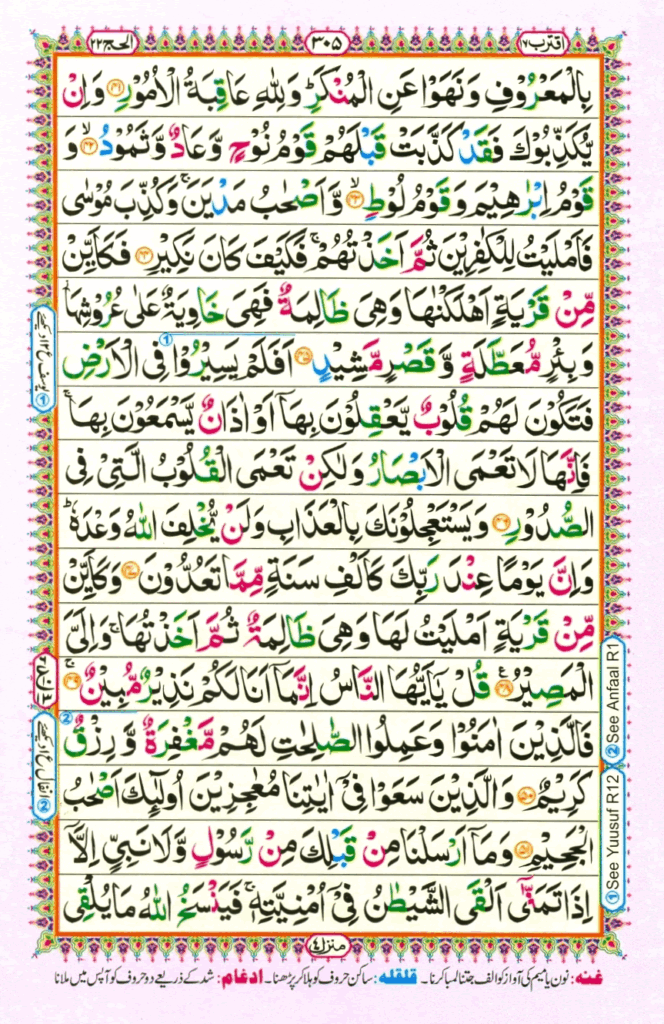 اقترب ١٧
٣٠٥
الحج ٢٢
بِالْمَعْرُوْفِ وَنَهَوْا عَنِ الْمُنْكَرِ ؕ وَلِلّٰهِ عَاقِبَةُ الْاُمُوْرِ ﴿۴۱﴾ وَاِنْ
يُّكَذِّبُوْكَ فَقَدْ كَذَّبَتْ قَبْلَهُمْ قَوْمُ نُوْحٍ وَّعَادٌ وَّثَمُوْدُ ﴿ۙ۴۲﴾ وَ
قَوْمُ اِبْرٰهِيْمَ وَقَوْمُ لُوْطٍ ﴿ۙ۴۳﴾ وَّاَصْحٰبُ مَدْيَنَ ۚ وَكُذِّبَ مُوْسٰى
فَاَمْلَيْتُ لِلْكٰفِرِيْنَ ثُمَّ اَخَذْتُهُمْ ۚ فَكَيْفَ كَانَ نَكِيْرِ ﴿۴۴﴾ فَكَاَيِّنْ
مِّنْ قَرْيَةٍ اَهْلَكْنٰهَا وَهِىَ ظَالِمَةٌ فَهِىَ خَاوِيَةٌ عَلٰى عُرُوْشِهَا
وَبِئْرٍ مُّعَطَّلَةٍ وَّقَصْرٍ مَّشِيْدٍ ﴿۴۵﴾ اَفَلَمْ يَسِيْرُوْا فِى الْاَرْضِ
فَتَكُوْنَ لَهُمْ قُلُوْبٌ يَّعْقِلُوْنَ بِهَاۤ اَوْ اٰذَانٌ يَّسْمَعُوْنَ بِهَا ۚ
فَاِنَّهَا لَا تَعْمَى الْاَبْصَارُ وَلٰكِنْ تَعْمَى الْقُلُوْبُ الَّتِىْ فِى
الصُّدُوْرِ ﴿۴۶﴾ وَيَسْتَعْجِلُوْنَكَ بِالْعَذَابِ وَلَنْ يُّخْلِفَ اللّٰهُ وَعْدَهٗ ؕ
وَاِنَّ يَوْمًا عِنْدَ رَبِّكَ كَاَلْفِ سَنَةٍ مِّمَّا تَعُدُّوْنَ ﴿۴۷﴾ وَكَاَيِّنْ
مِّنْ قَرْيَةٍ اَمْلَيْتُ لَهَا وَهِىَ ظَالِمَةٌ ثُمَّ اَخَذْتُهَا ۚ وَاِلَىَّ
الْمَصِيْرُ ﴿۴۸﴾ قُلْ يٰۤاَيُّهَا النَّاسُ اِنَّمَاۤ اَنَا لَكُمْ نَذِيْرٌ مُّبِيْنٌ ﴿ۚ۴۹﴾
فَالَّذِيْنَ اٰمَنُوْا وَعَمِلُوا الصّٰلِحٰتِ لَهُمْ مَّغْفِرَةٌ وَّرِزْقٌ
كَرِيْمٌ ﴿۵۰﴾ وَالَّذِيْنَ سَعَوْا فِىْۤ اٰيٰتِنَا مُعٰجِزِيْنَ اُولٰٓئِكَ اَصْحٰبُ
الْجَحِيْمِ ﴿۵۱﴾ وَمَاۤ اَرْسَلْنَا مِنْ قَبْلِكَ مِنْ رَّسُوْلٍ وَّلَا نَبِىٍّ اِلَّاۤ
اِذَا تَمَنّٰىۤ اَلْقَى الشَّيْطٰنُ فِىْۤ اُمْنِيَّتِهٖ ۚ فَيَنْسَخُ اللّٰهُ مَا يُلْقِى
منزل ٤
② See Anfaal R1
① See Yuusuf R12
غنه: نون یا میم کی آواز کو الف جتنا لمبا کرنا۔ قلقله: ساکن حروف کو ہلا کر پڑھنا۔ ادغام: شد کے ذریعے دو حروف کو آپس میں ملانا